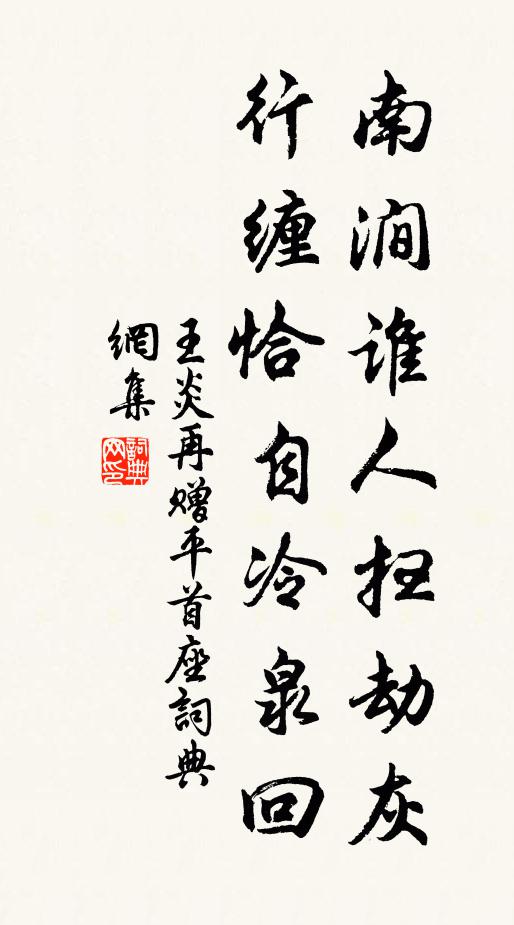 南澗谁人扫劫灰
行缠恰自冷泉回
王炎再赠平首座詞典
網集
詞典网印